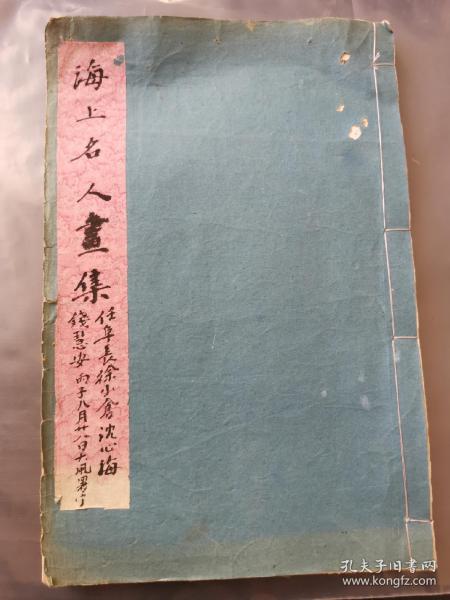 海上名人畫集
任阜長徐小倉沈心海
錢慧安 丙子八月廿八日大風署
孔夫子旧书网
www.kongfz.com